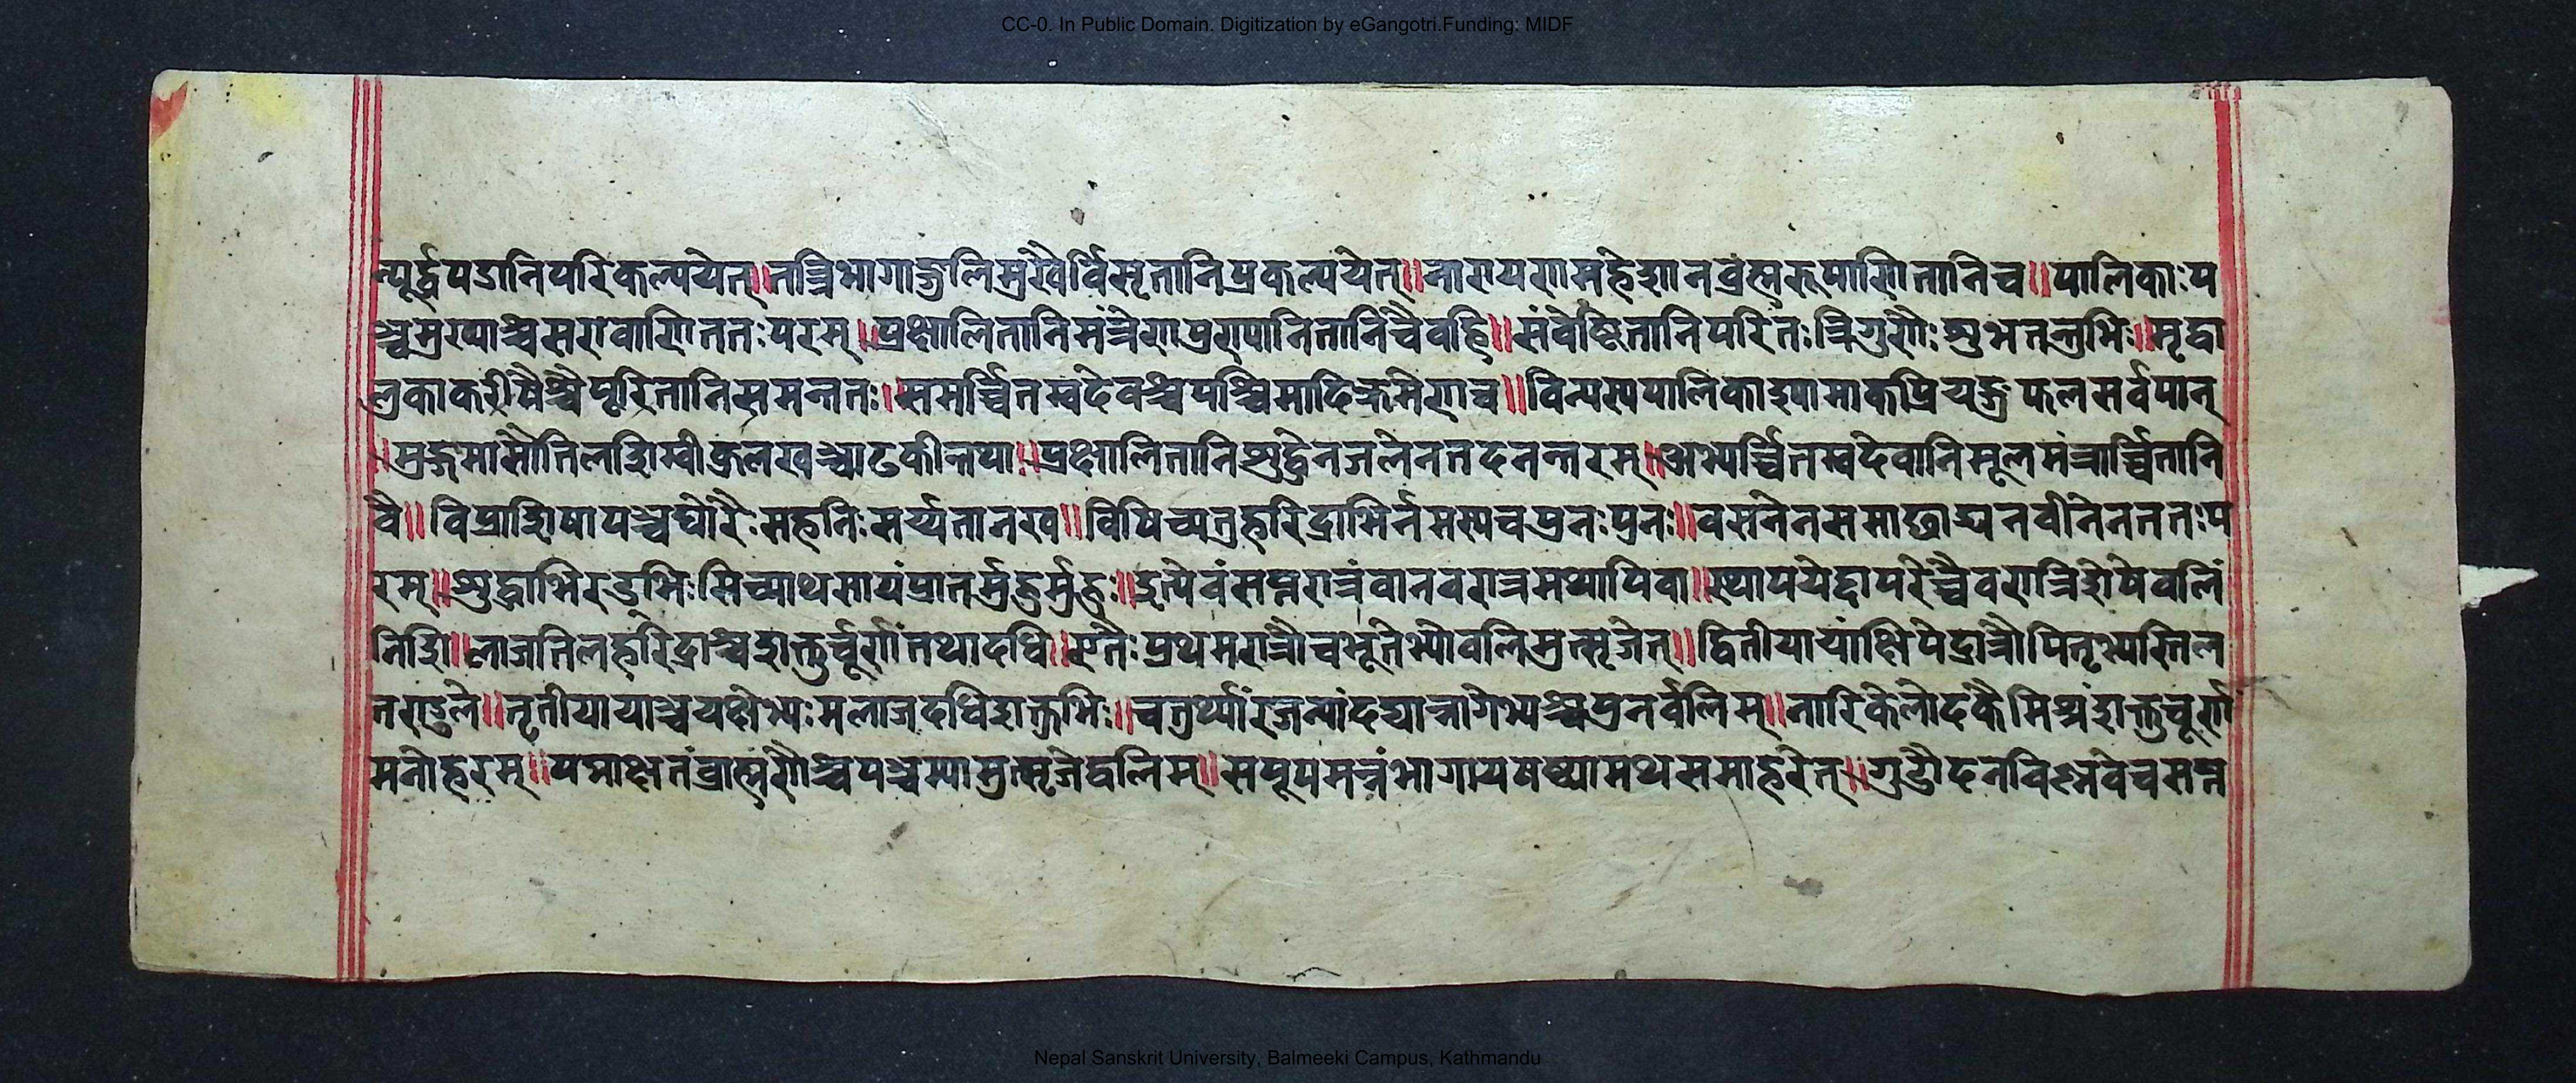 CC-0. In Public Domain. Digitization by eGangotri.Funding: MIDF
न्पूर्द्वपडानिपरिकल्पयेत्॥तत्त्रिभागाङ्गुलिमुखैर्विसृतानिप्रकल्पयेत्॥नारायणमहेशानब्रंह्मरूपाणितानिच॥पालिकाःप
ञ्चमुख्याश्चसरावाणिततःपरम्॥प्रक्षालितानिमंत्रेणपुण्यानितानिंचैवहि॥संवेष्टितानिपरितःत्रिगुणैःशुभतन्तुभिः॥मृद्वा
लुकाकरीषैश्चैपूरितानिसमन्ततः॥समर्च्चितस्वदेवश्चपश्चिमादिक्रमेणच॥विन्यस्यपालिकाश्यामाकप्रियङ्गुफलसर्वपान्
॥मुङ्गमासौतिलशिम्बीकुलखञ्चाढकीन्तथा॥प्रक्षालितानिशुद्धेनजलेनतदनन्तरम्॥अभ्यर्च्चितस्वदेवानिमूलमंत्रार्च्चितानि
वै॥विप्राशिषापञ्चघोरैःमहनिःमर्य्यतानख॥विधिच्यतुहरिद्राभिर्नमस्यचपुनःपुनः॥वसनेनसमाछाद्यनवीनेनततःप
रम्॥शुद्धाभिरद्भिःसिच्याथसायंप्रातर्मुहुर्मुहुः॥इत्येवंसप्तरात्रंवानवरात्रमथापिवा॥स्थापयेद्दापरेच्चैवरात्रिशेषेवलिं
निशि॥लाजतिलहरिद्राश्चशक्तुर्चूर्णंतथादधि॥एतैःप्रथमरात्रौचभूतेभ्योवलिमुत्सृजेत्॥द्वितीयायांक्षिपेद्रात्रौपितृभ्यस्तिल
तण्डुले॥तृतीयायाञ्चयक्षेभ्यःमलाजदधिशक्तुभिः॥चतुर्थ्यांरजन्यांदद्यान्नागेभ्यश्चपुनर्वलिम्॥नारिकेलोदकैमिश्रंशक्तुचूर्णं
मनोहरम्॥पद्माक्षतंब्राह्मणेश्चपञ्चम्यामुत्सृजेद्वलिम्॥सपूपमन्नंभागायषष्ठ्यामथसमाहरेत्॥गुडौदनविष्णवेचसप्त
Nepal Sanskrit University, Balmeeki Campus, Kathmandu